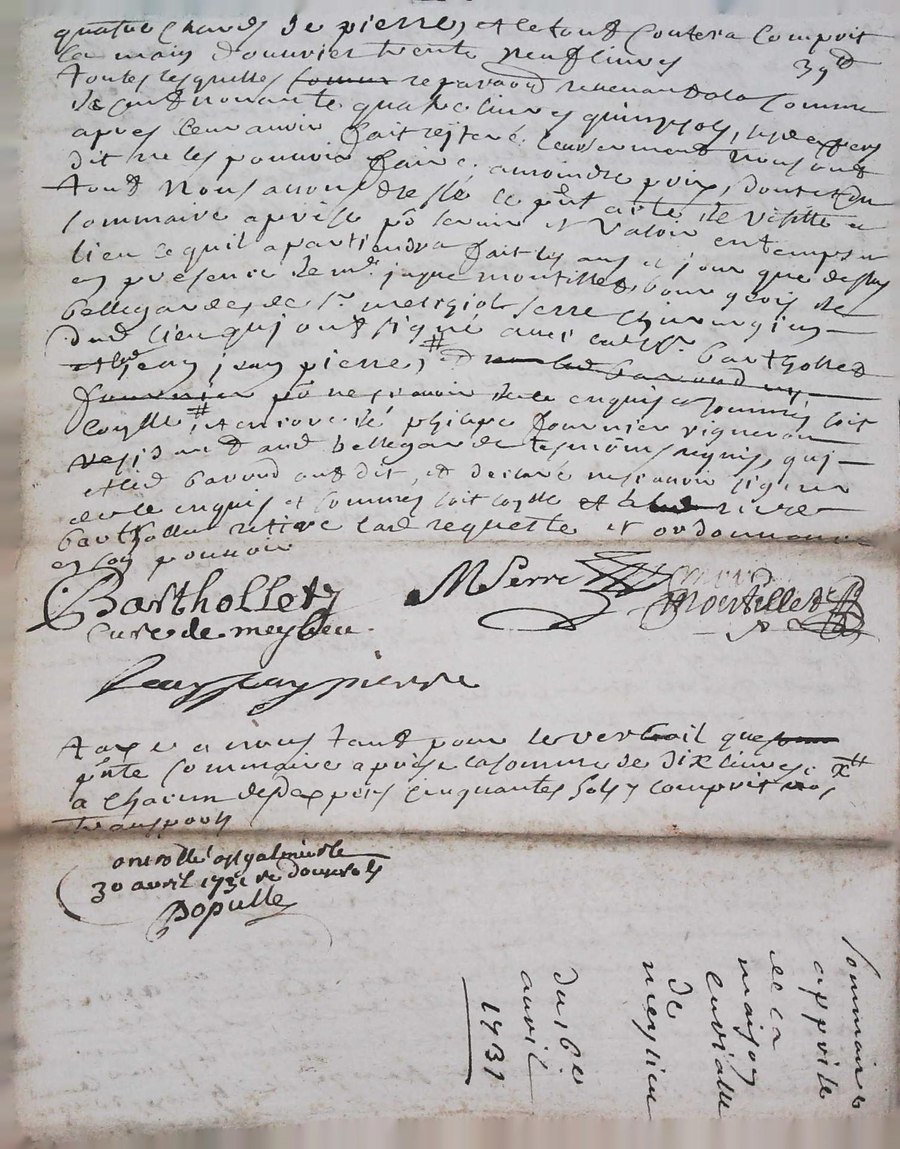 quatre chards de pierre, et le tout coutera comprit
la main d'ouvrier trente neuf livres 39ᵗᵗ
toutes lesquelles reparaons revenant a la somme
de cent nonante quatre livres quinze sols, les experts
apres leur avoir fait reiterè leur serment nous ont
dit ne les pouvoir faire a moindre prix, dont et du
tout nous avons dressé ce pñt acte de visitte et
sommaire aprise pō servir et valoir en temps et
lieu ce quil apartiendra fait les an et jour que dessus
en presence de mʳ jaque montillet bourgeois de
bellegarde et de sʳ serre chirurgien
dud lieu qui ont signé avec led sʳ barthollet
et led jean pierre, #
fournier pō ne scavoir de ce enquis et sommés soit
coytte # et encore de philipe fournier vigneron
resident aud bellegarde tesmoins requis, qui
et led bavoud ont dit, et declaré ne scavoir signer
de ce enquis et sommes soit coytte et led sieur
barthollet retire lad requeste et ordonnance
en son pouvoir
Barthollet
cure de meylieu
M Serre
Montillet
Jean jean pierre
taxe a nous tant pour le verbail que
pñte sommaire aprise la somme de dix livres xᵗᵗ
a chacun des experts cinquantes sols comprit nos
transports
controllé a sᵗ galmier le
30 avril 1731 re douze sols
Populle
Sommaire
apprise
de la
maison
curialle
de
meylieu
du 16e
avril
1731